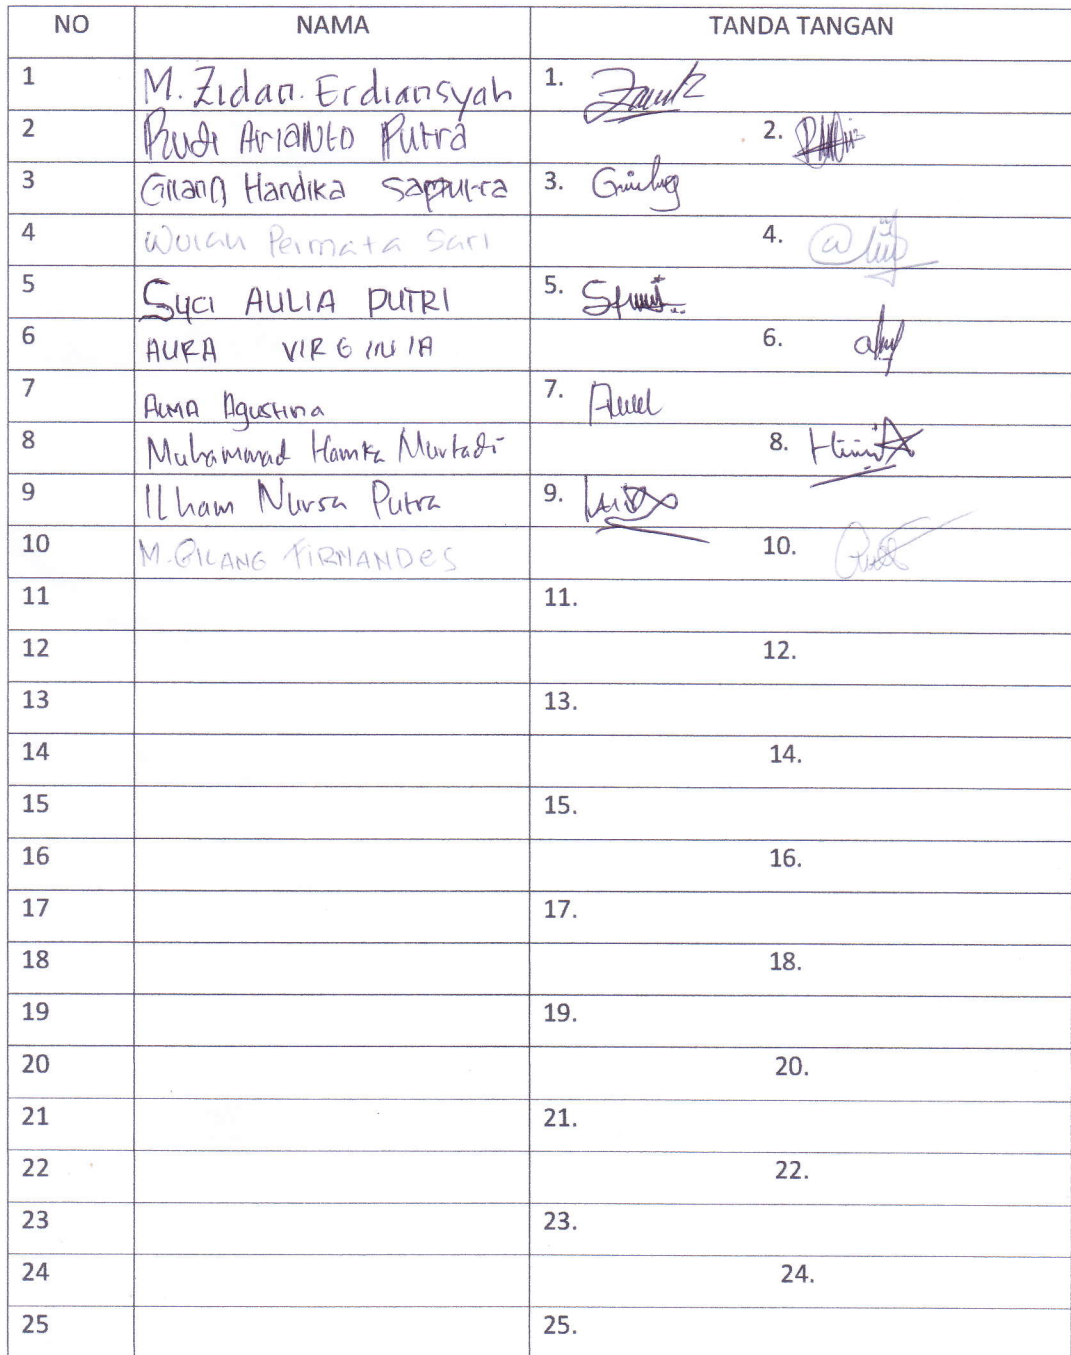 NO NAMA TANDA TANGAN
1 M. Zidan. Erdiansyah 1.
2 Rudi Arianto Putra 2.
3 Gilang Handika Saputra 3.
4 Wulan Permata Sari 4.
5 Suci AULIA PUTRI 5.
6 AURA VIRGINIA 6.
7 ALMA Agustina 7.
8 Muhammad Hamka Murtadi 8.
9 Ilham Nursa Putra 9.
10 M. GILANG FIRMANDES 10.
11 11.
12 12.
13 13.
14 14.
15 15.
16 16.
17 17.
18 18.
19 19.
20 20.
21 21.
22 22.
23 23.
24 24.
25 25.